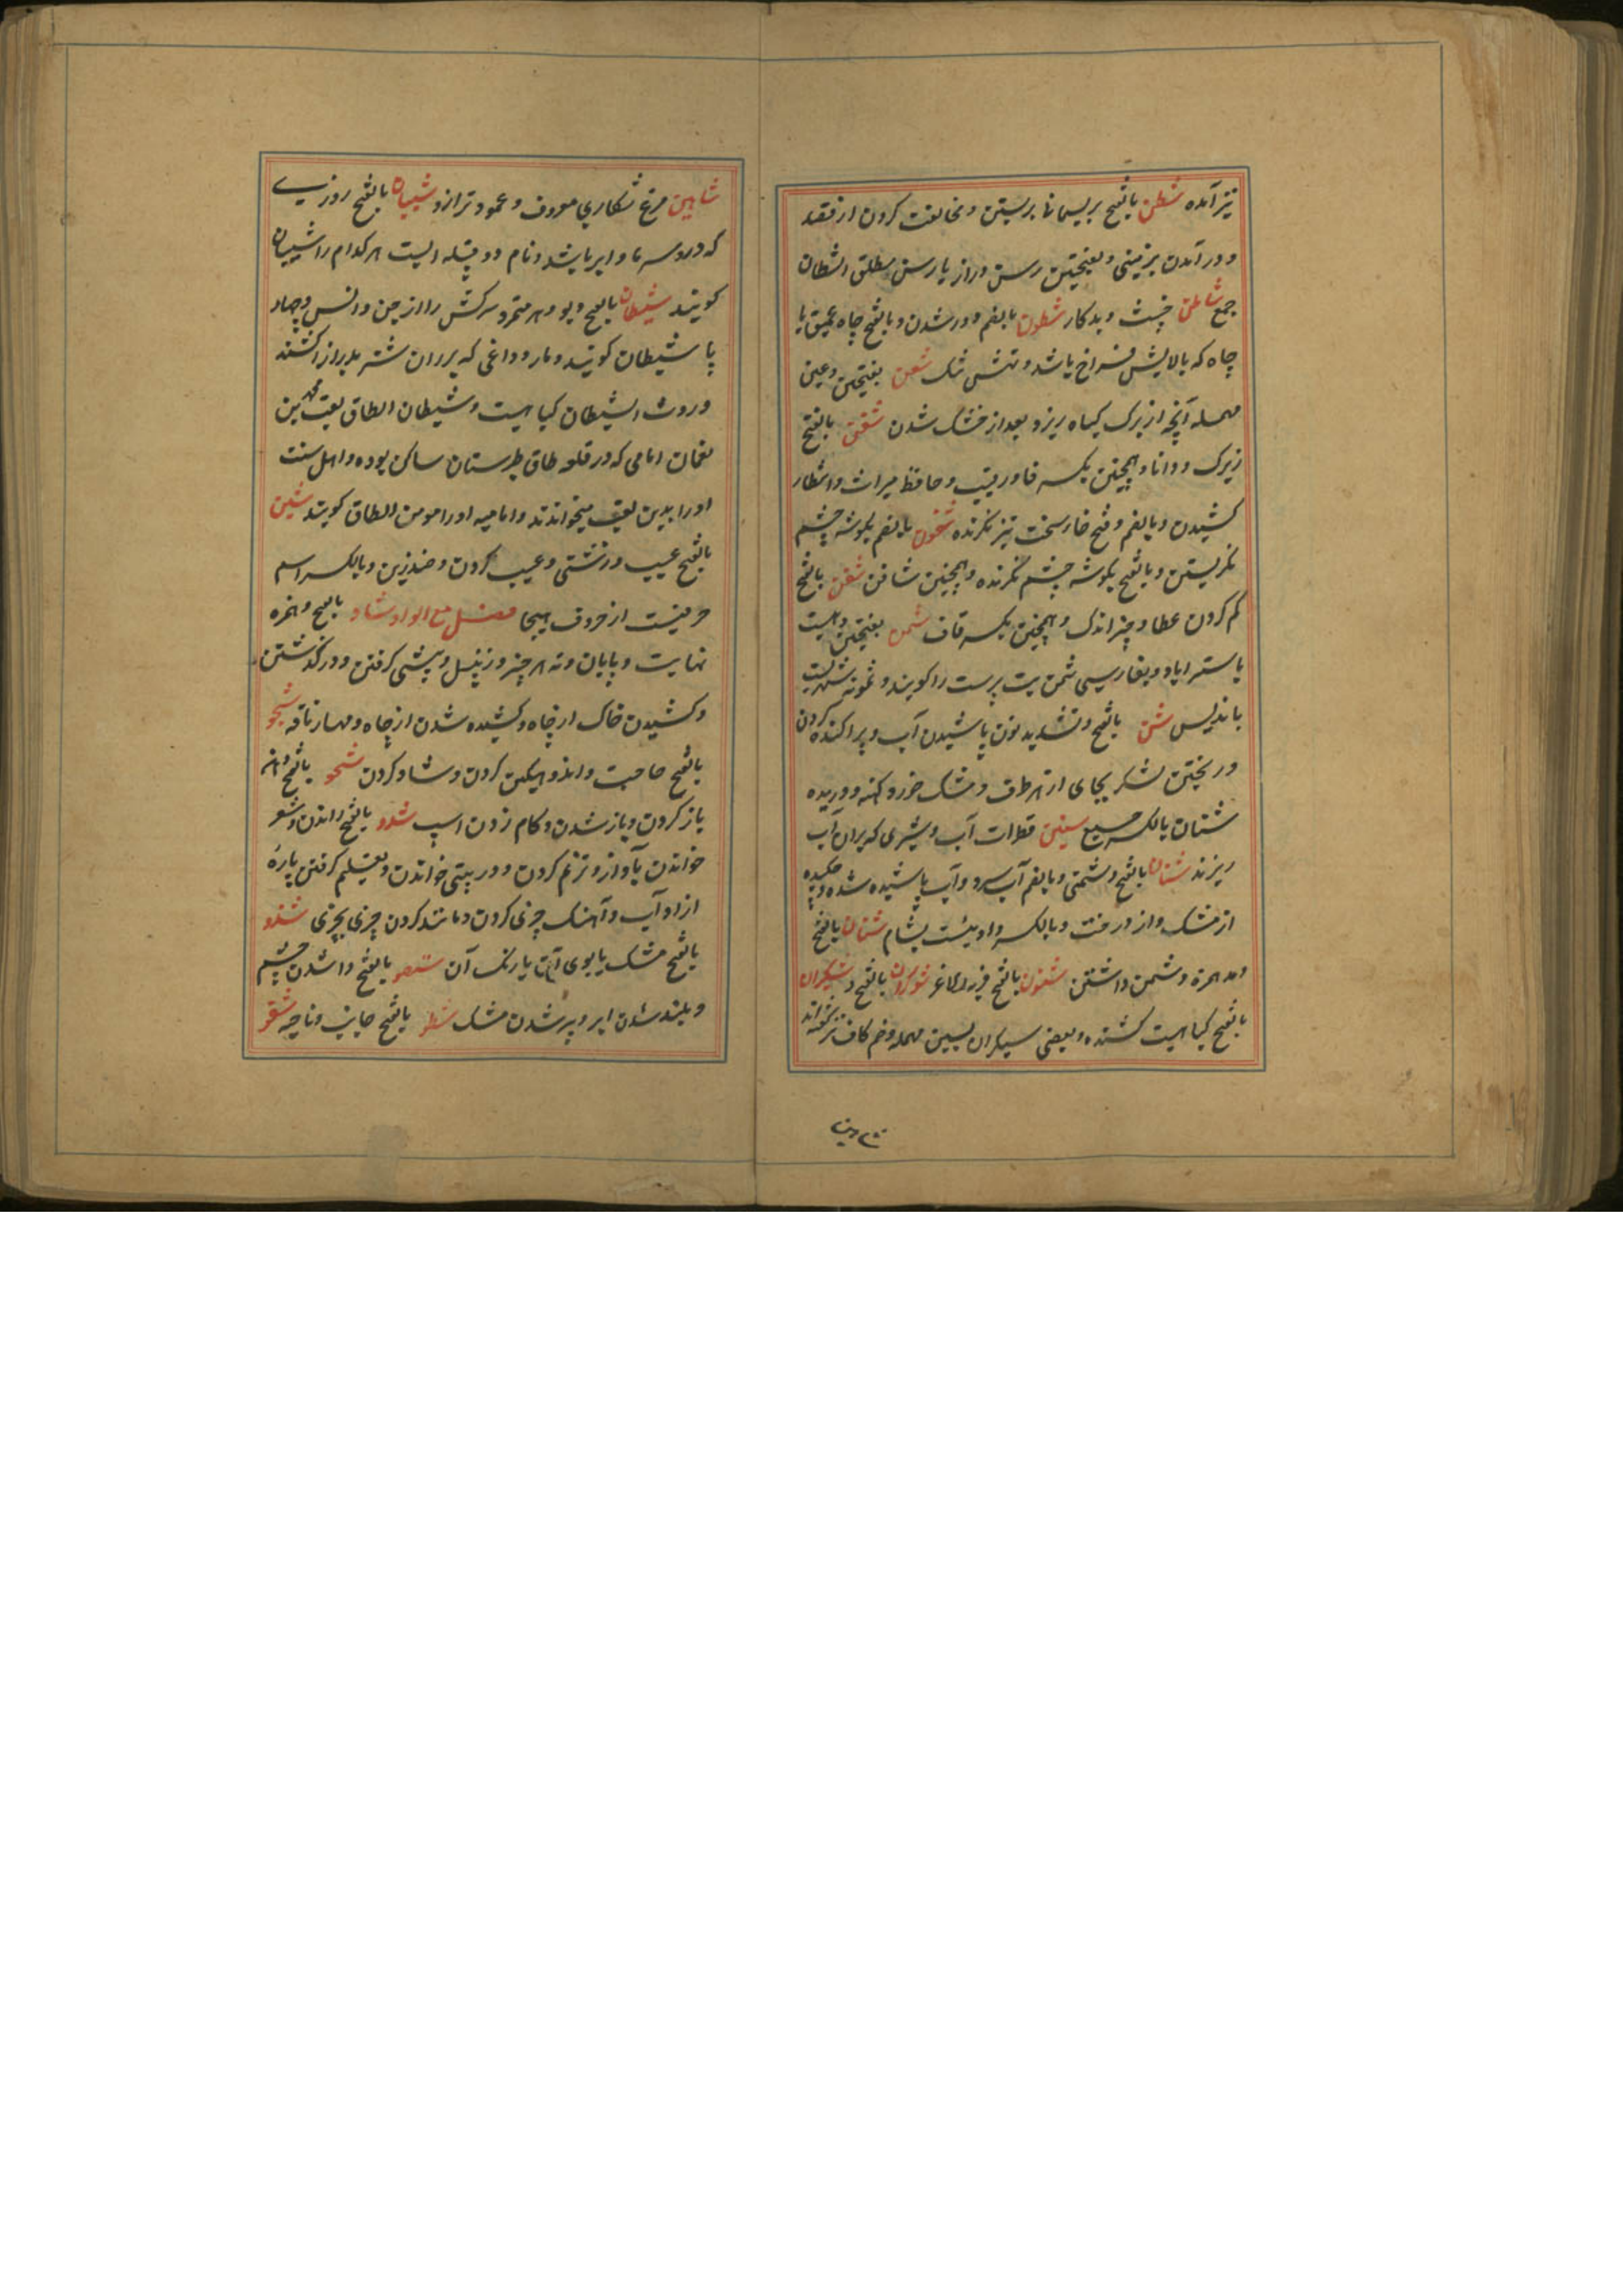 تیز آمده شطن بالفتح بریسمانها بربستن و مخالفت کردن از قصد
و در آمدن بزمینی و بفتحتین رسن دراز یا رسن مطلق اشطان
جمع شاطن خبیث و بدکار شطون بالضم دور شدن و بالفتح چاه عمیق یا
چاه که بالایش فراخ باشد و تهش تنک شعن بفتحتین و عین
مهمله آنچه از برک کیاه ریزد بعد از خشک شدن شفن بالفتح
زیرک و دانا و همچنین بکسر فا و رقیب و حافظ میراث و انتظار
کشیدن و بالضم و فتح فا سخت تیز نکرنده شفون بالضم بکوشه چشم
نکریستن و بالفتح بکوشه چشم نکرنده و همچنین شافن شقن بالفتح
کم کردن عطا و چیز اندک و همچنین بکسر قاف شمن بفتحتین دهیست
باستراباد و بفارسی شمن بت پرست را کویند و شمونه شهریست
باندلس شن بالفتح و تشدید نون پاشیدن آب و پراکنده کردن
و ریختن لشکر بجای از هر طرف و مشک خورد کهنه و دریده
شنان بالکسر جمیع سنین قطرات آب و شیری که بران آب
ریزند شنان بالفتح دشمنی و بالضم آب سرد و آب پاشیده شده و چکیده
از مشک و از درخت و بالکسر وادییست بشام شنان بالفتح
و مد همزه دشمن داشتن شنون بالفتح فربه و لاغر شوکران بالفتح و شیکران
بالفتح کیاهیست کشنده و بعضی سیکران بسین مهمله و ضم کاف نیز کفته اند
شاهین
شاهین مرغ شکاری معروف و عمود ترازو شیبان بالفتح روزی
که درو سرما و ابر باشد و نام دو قبیله ایست هر کدام را شیبان
کویند شیطان بالفتح دیو و هر متمرد سرکش را از جن و انس و چهار
پا شیطان کویند و مار و داغی که بر ران شتر بدراز کشند
و روث الشیطان کیاهیست و شیطان الطاق لقب محمد بن
نعمان امامی که در قلعه طاق طبرستان ساکن بوده و اهل سنت
او را بدین لقب میخواندند و امامیه او را مومن الطاق کویند شین
بالفتح عیب و زشتی و عیب کردن و ضد زین و بالکسر اسم
حرفیست از حروف تهجا فصل مع الواو شاو بالفتح و همزه
نهایت و پایان و ته هر چیز و زنبیل و پیشی کرفتن و در کذشتن
و کشیدن خاک از چاه و کشیده شدن از چاه و مهار ناقه شجو
بالفتح حاجت و اندوهکین کردن و شاد کردن شحو بالفتح دهن
باز کردن و باز شدن و کام زدن اسپ شدو بالفتح راندن و شعر
خواندن بآواز و ترنم کردن و دو بیتی خواندن و بقلم کرفتن پاره
از ادب و آهنک چیزی کردن و مانند کردن چیزی بچیزی شذو
بالفتح مشک یا بوی آن یا رنک آن شصو بالفتح وا شدن چشم
و بلند شدن ابر و پر شدن مشک شطر بالفتح جانب و ناحیه شقو